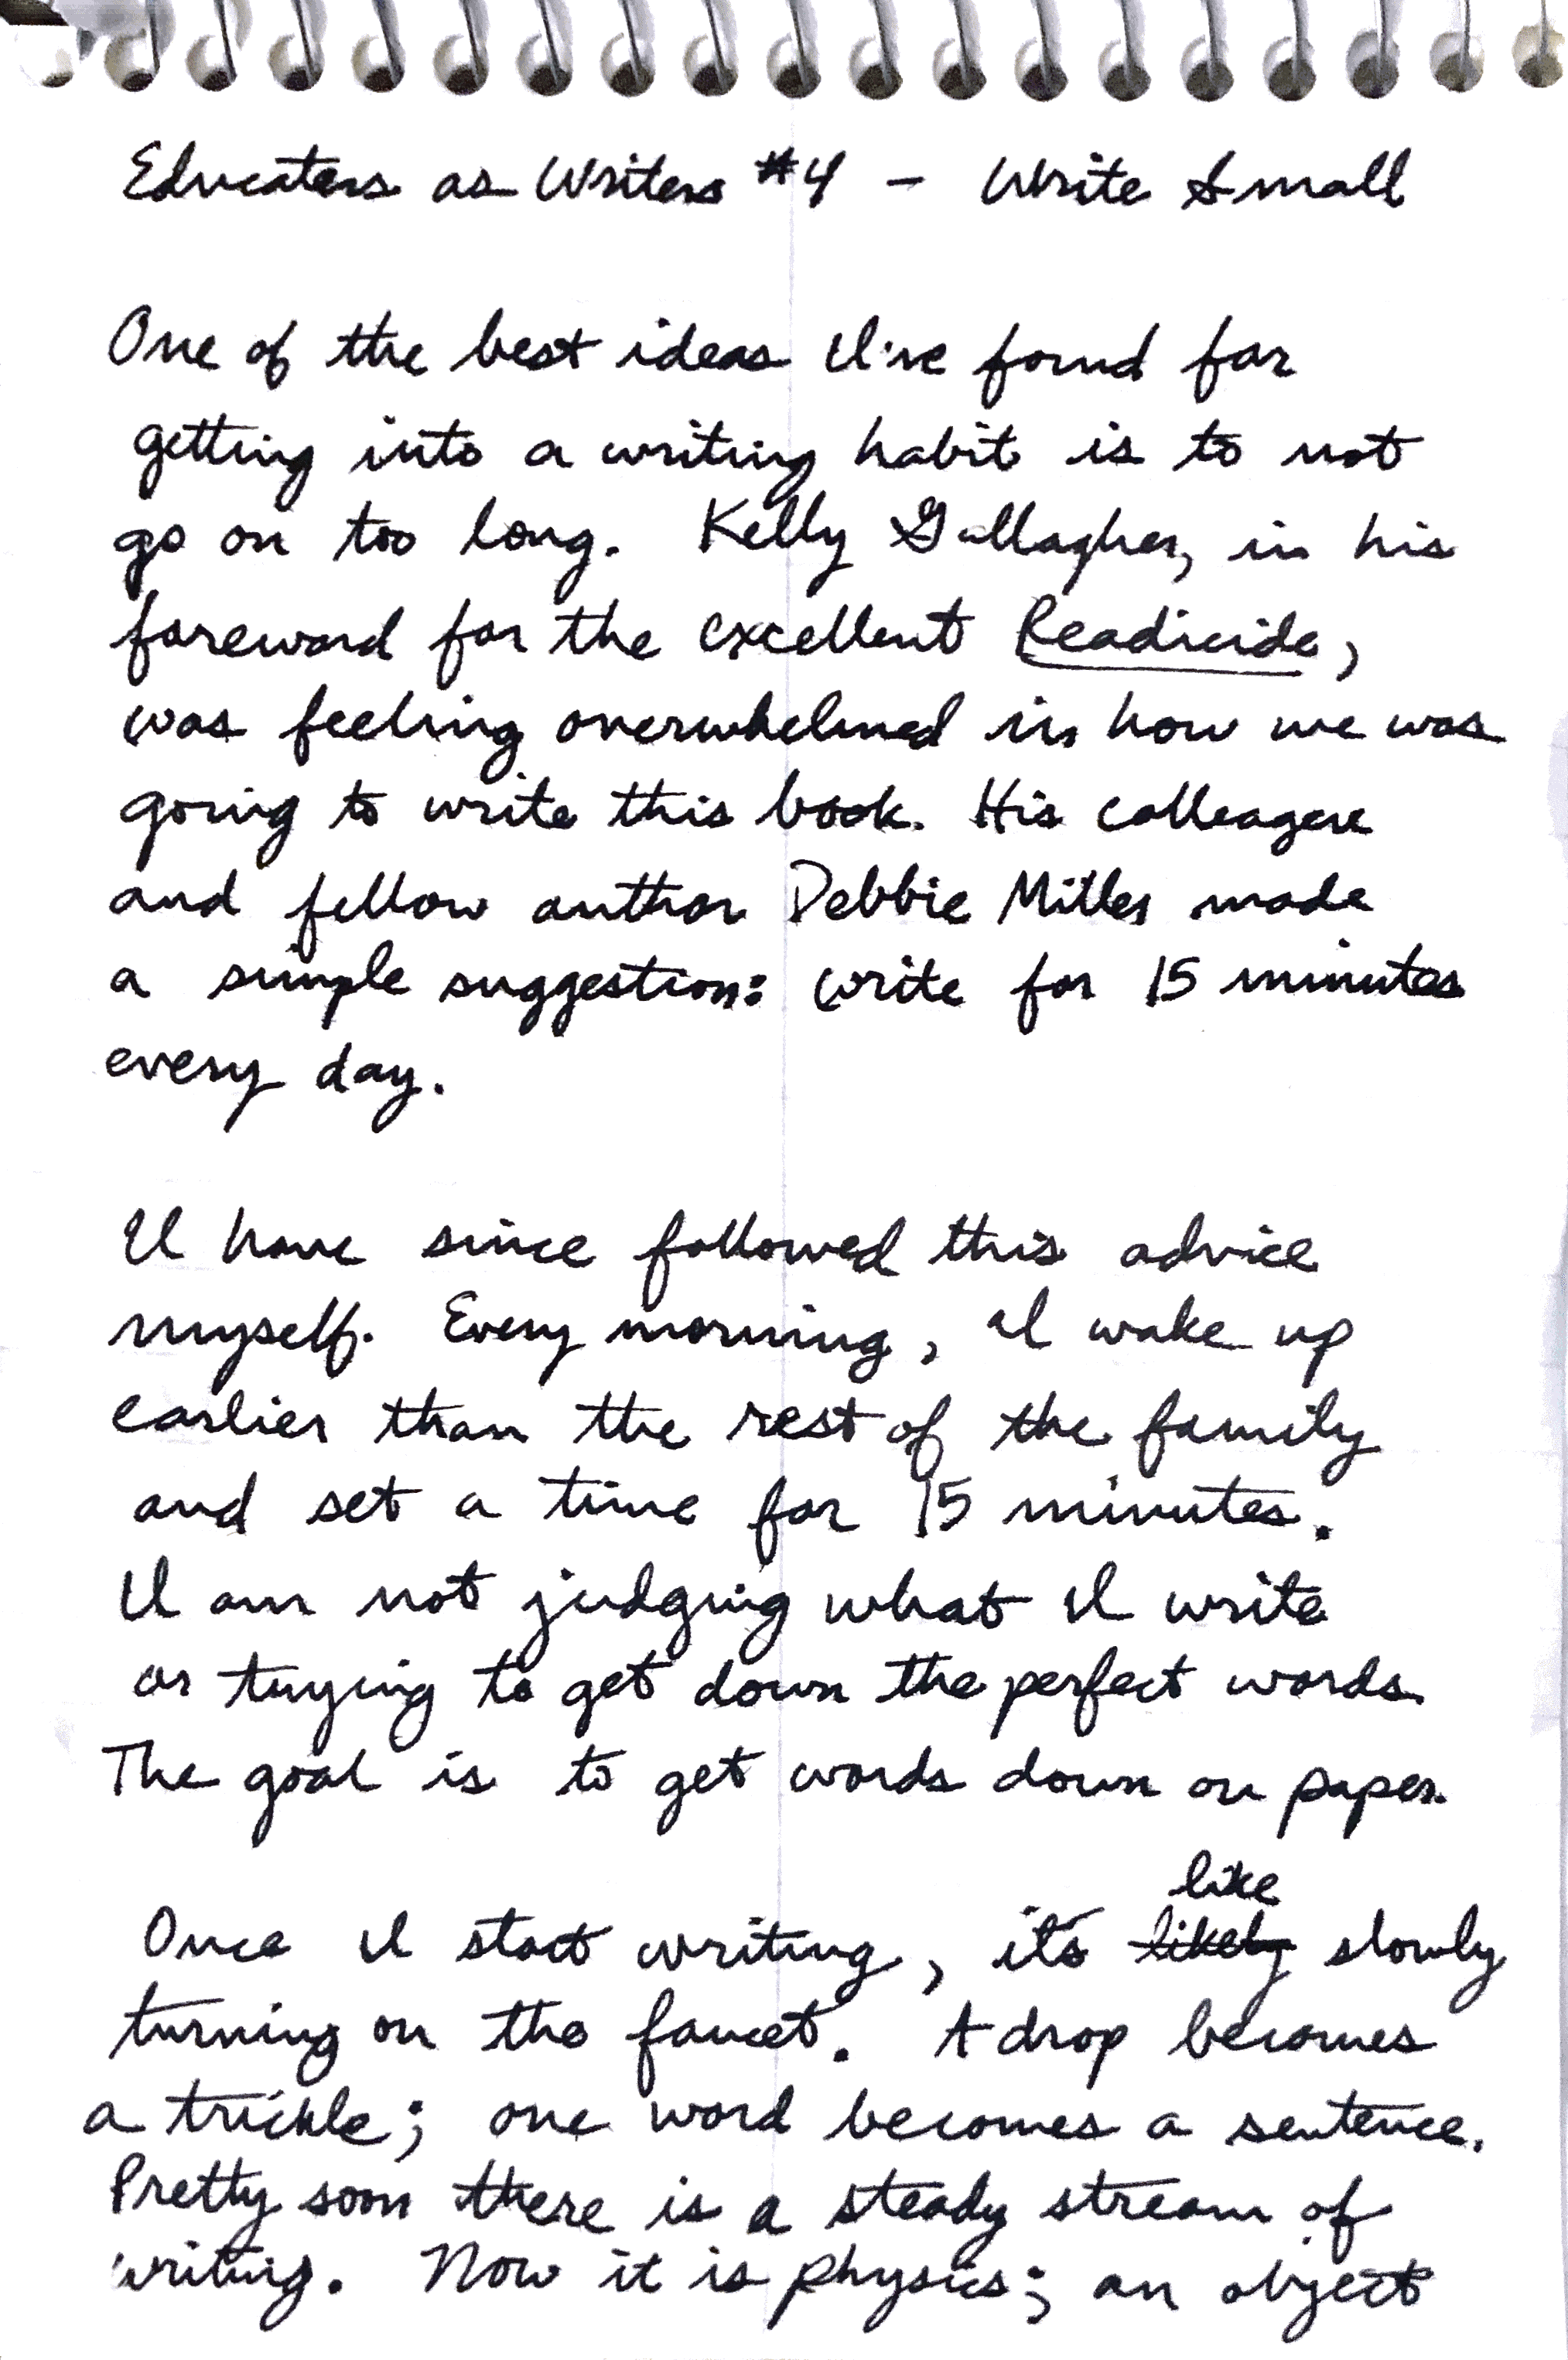 Educators as Writers #4 – Write Small
One of the best ideas I've found for
getting into a writing habit is to not
go on too long. Kelly Gallagher, in his
foreword for the excellent Readicide,
was feeling overwhelmed in how we was
going to write this book. His colleague
and fellow author Debbie Miller made
a simple suggestion: write for 15 minutes
every day.
I have since followed this advice
myself. Every morning, I wake up
earlier than the rest of the family
and set a time for 15 minutes.
I am not judging what I write
or trying to get down the perfect words.
The goal is to get words down on paper.
like
Once I start writing, it's likely slowly
turning on the faucet. A drop becomes
a trickle; one word becomes a sentence.
Pretty soon there is a steady stream of
writing. Now it is physics; an object